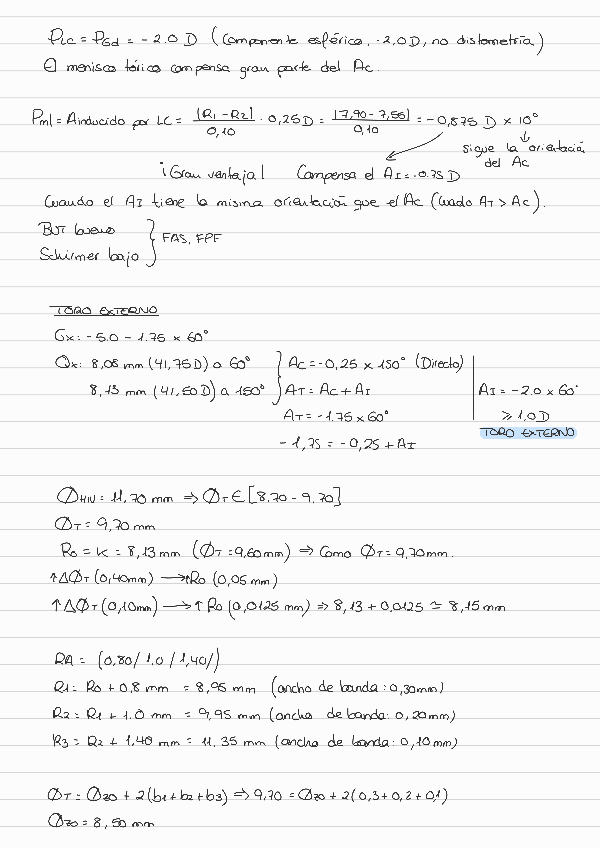 PLC = PGd = -2.0 D (Componente esférica, -2,0D, no distometría)
El menisco tórico compensa gran parte del Ac.
Pml = Ainducido por LC = |R1 - R2| / 0,10 · 0,25 D = |7,90 - 7,55| / 0,10 = -0,875 D × 10°
sigue la orientación del Ac
¡Gran ventaja! Compensa el AI = -0.75 D
Cuando el AI tiene la misma orientación que el Ac (cuado AT > Ac).
BUT bueno
Schirmer bajo } FAS, FPF
TORO EXTERNO
Gx: -5.0 - 1.75 × 60°
Qx: 8,08 mm (41,75D) a 60° } Ac = -0,25 × 150° (Directo)
8,13 mm (41,50D) a 150° } AT = Ac + AI | AI = -2.0 × 60°
AT = -1.75 × 60° | ≥ 1,0 D
TORO EXTERNO
-1,75 = -0,25 + AI
ØHIV = 11,70 mm ⇒ ØT ∈ [8.70 - 9.70]
ØT = 9,70 mm
Ro = K = 8,13 mm (ØT = 9,60mm) ⇒ Como ØT = 9,70mm.
↑ΔØT (0,40mm) → ↑Ro (0,05 mm)
↑ΔØT (0,10mm) → ↑Ro (0,0125 mm) ⇒ 8,13 + 0,0125 ≃ 8,15 mm
RA = (0,80/ 1,0 / 1,40/)
R1 = Ro + 0,8 mm = 8,95 mm (ancho de banda: 0,30mm)
R2 = R1 + 1.0 mm = 9,95 mm (ancho de banda: 0,20mm)
R3 = R2 + 1,40 mm = 11.35 mm (ancho de banda: 0,10mm)
ØT = ØZO + 2(b1+b2+b3) ⇒ 9,70 = ØZO + 2(0,3+0,2+0,1)
ØZO = 8,50 mm